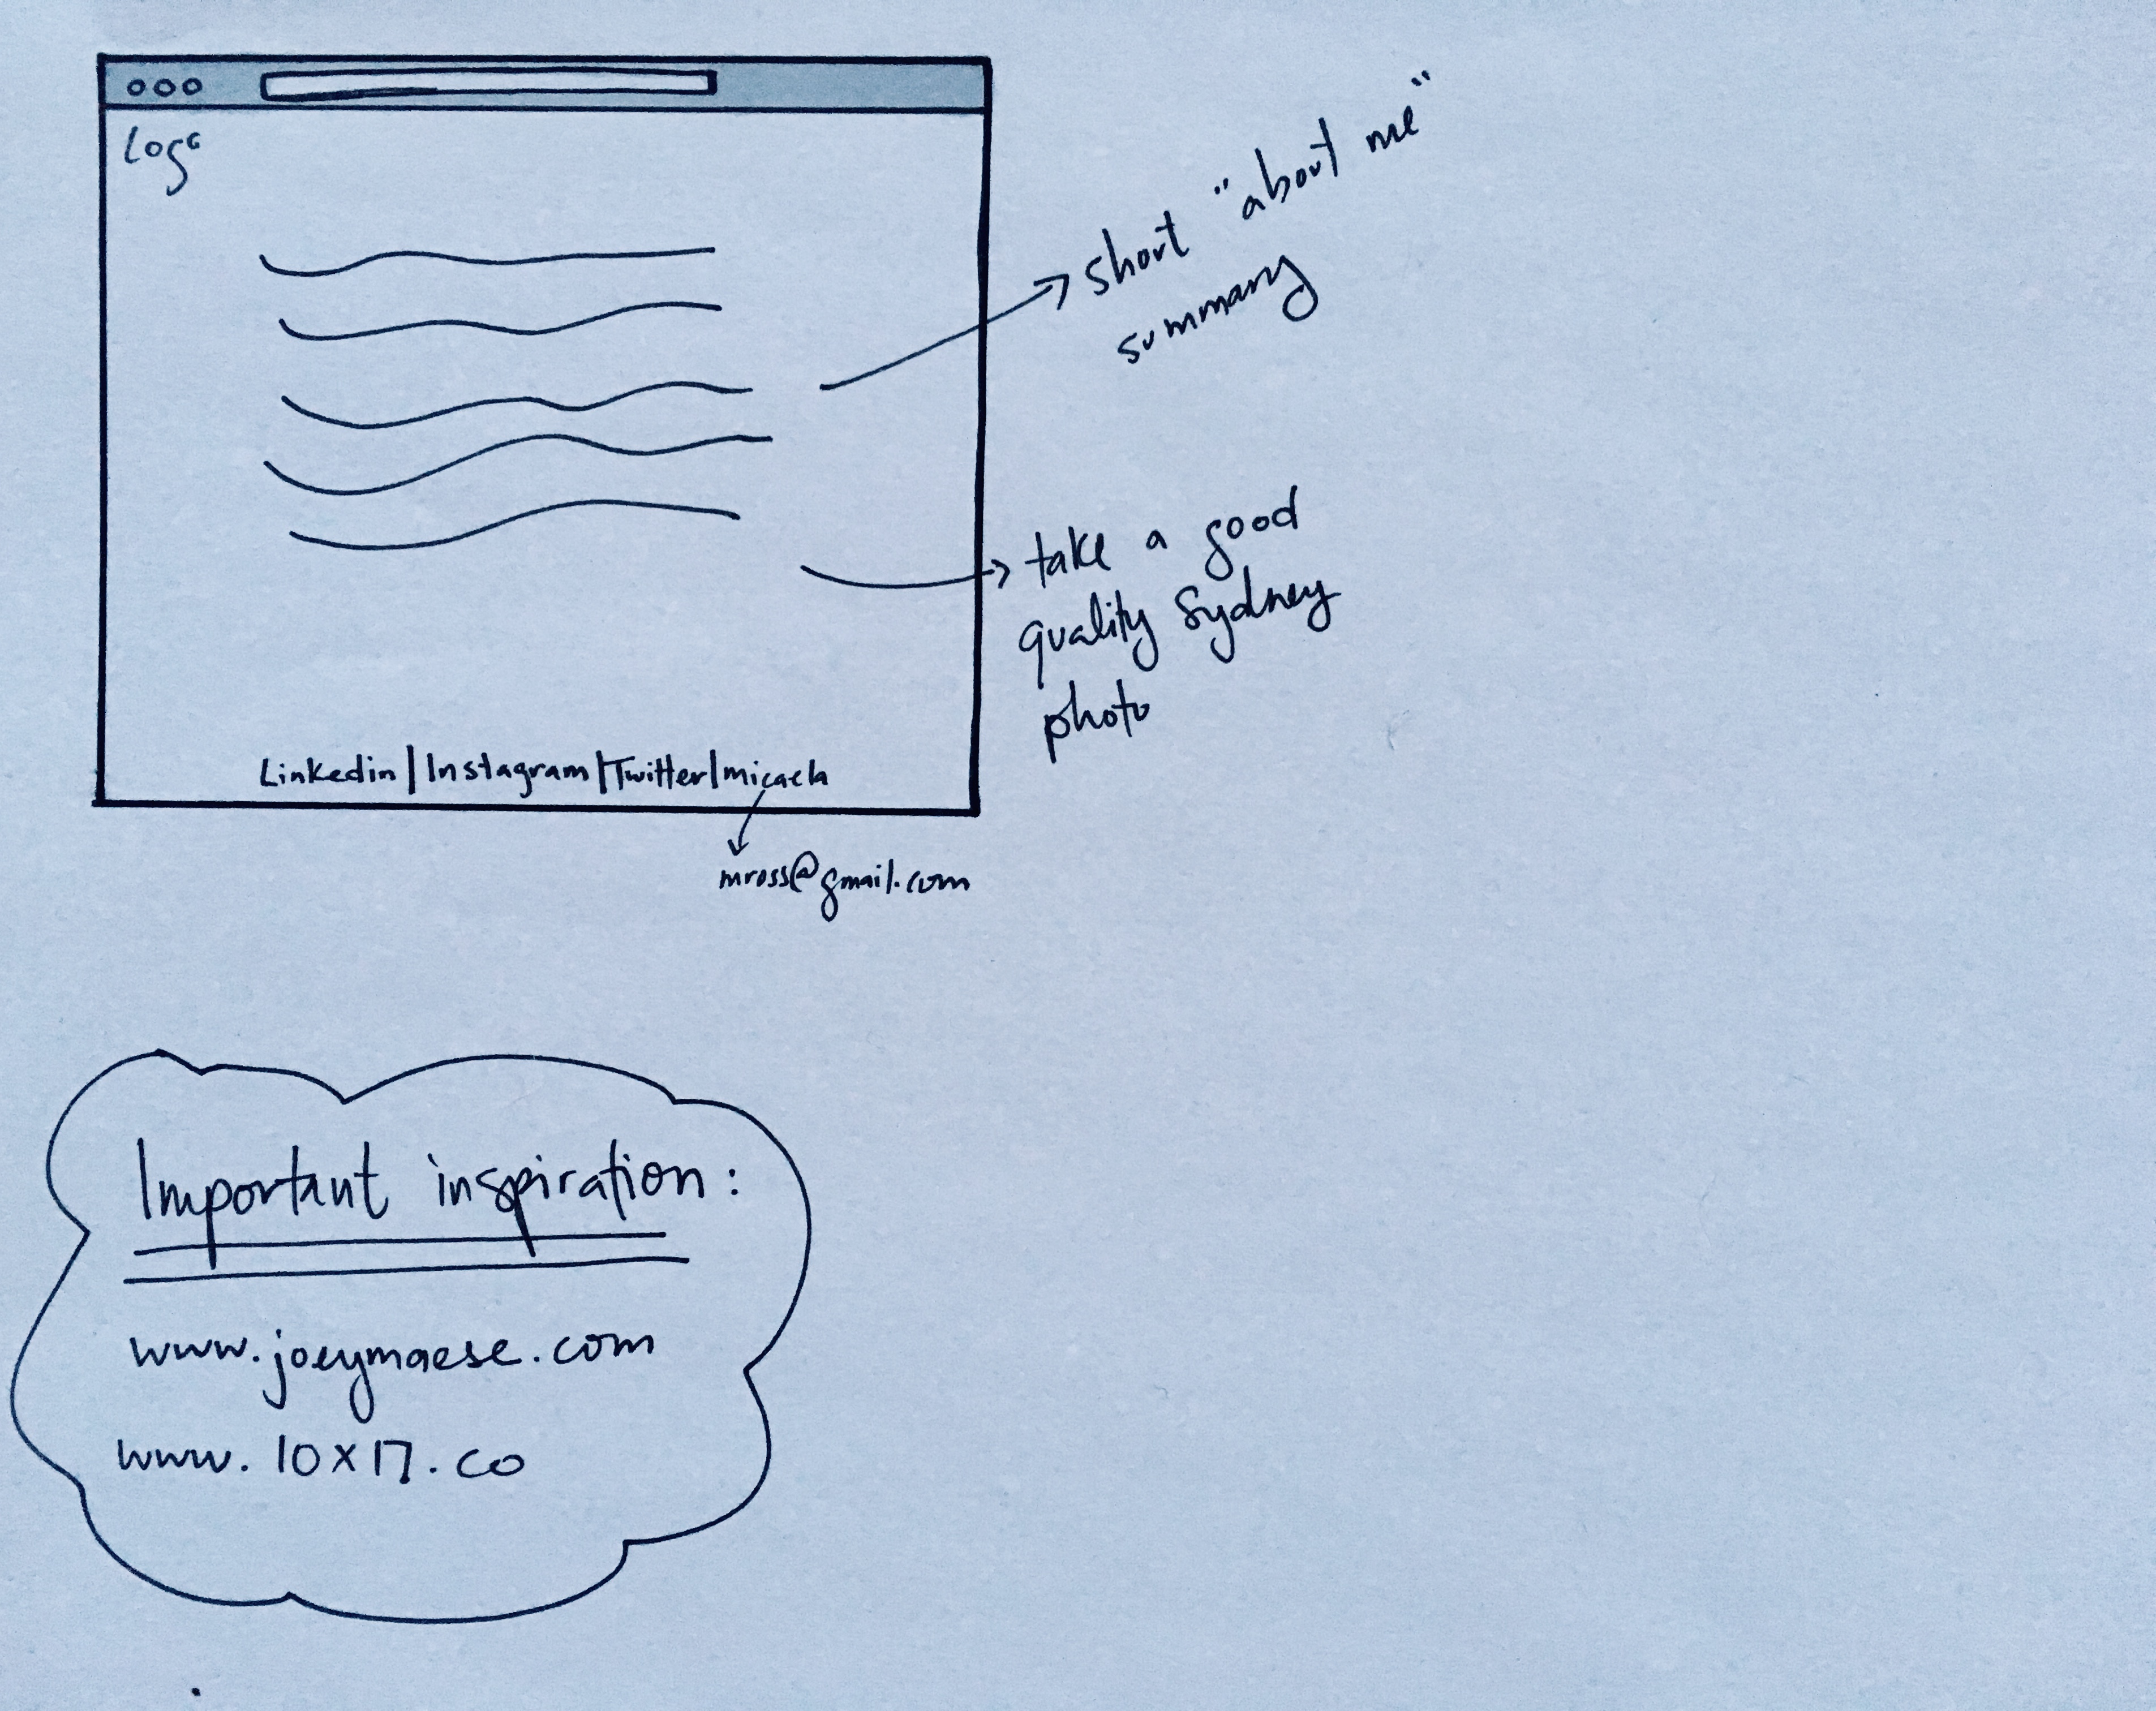 Logo
short "about me"
summary
take a good
quality Sydney
photo
Linkedin|Instagram|Twitter|micaela
mross@gmail.com
Important inspiration:
www.joeymaese.com
www.10x17.co